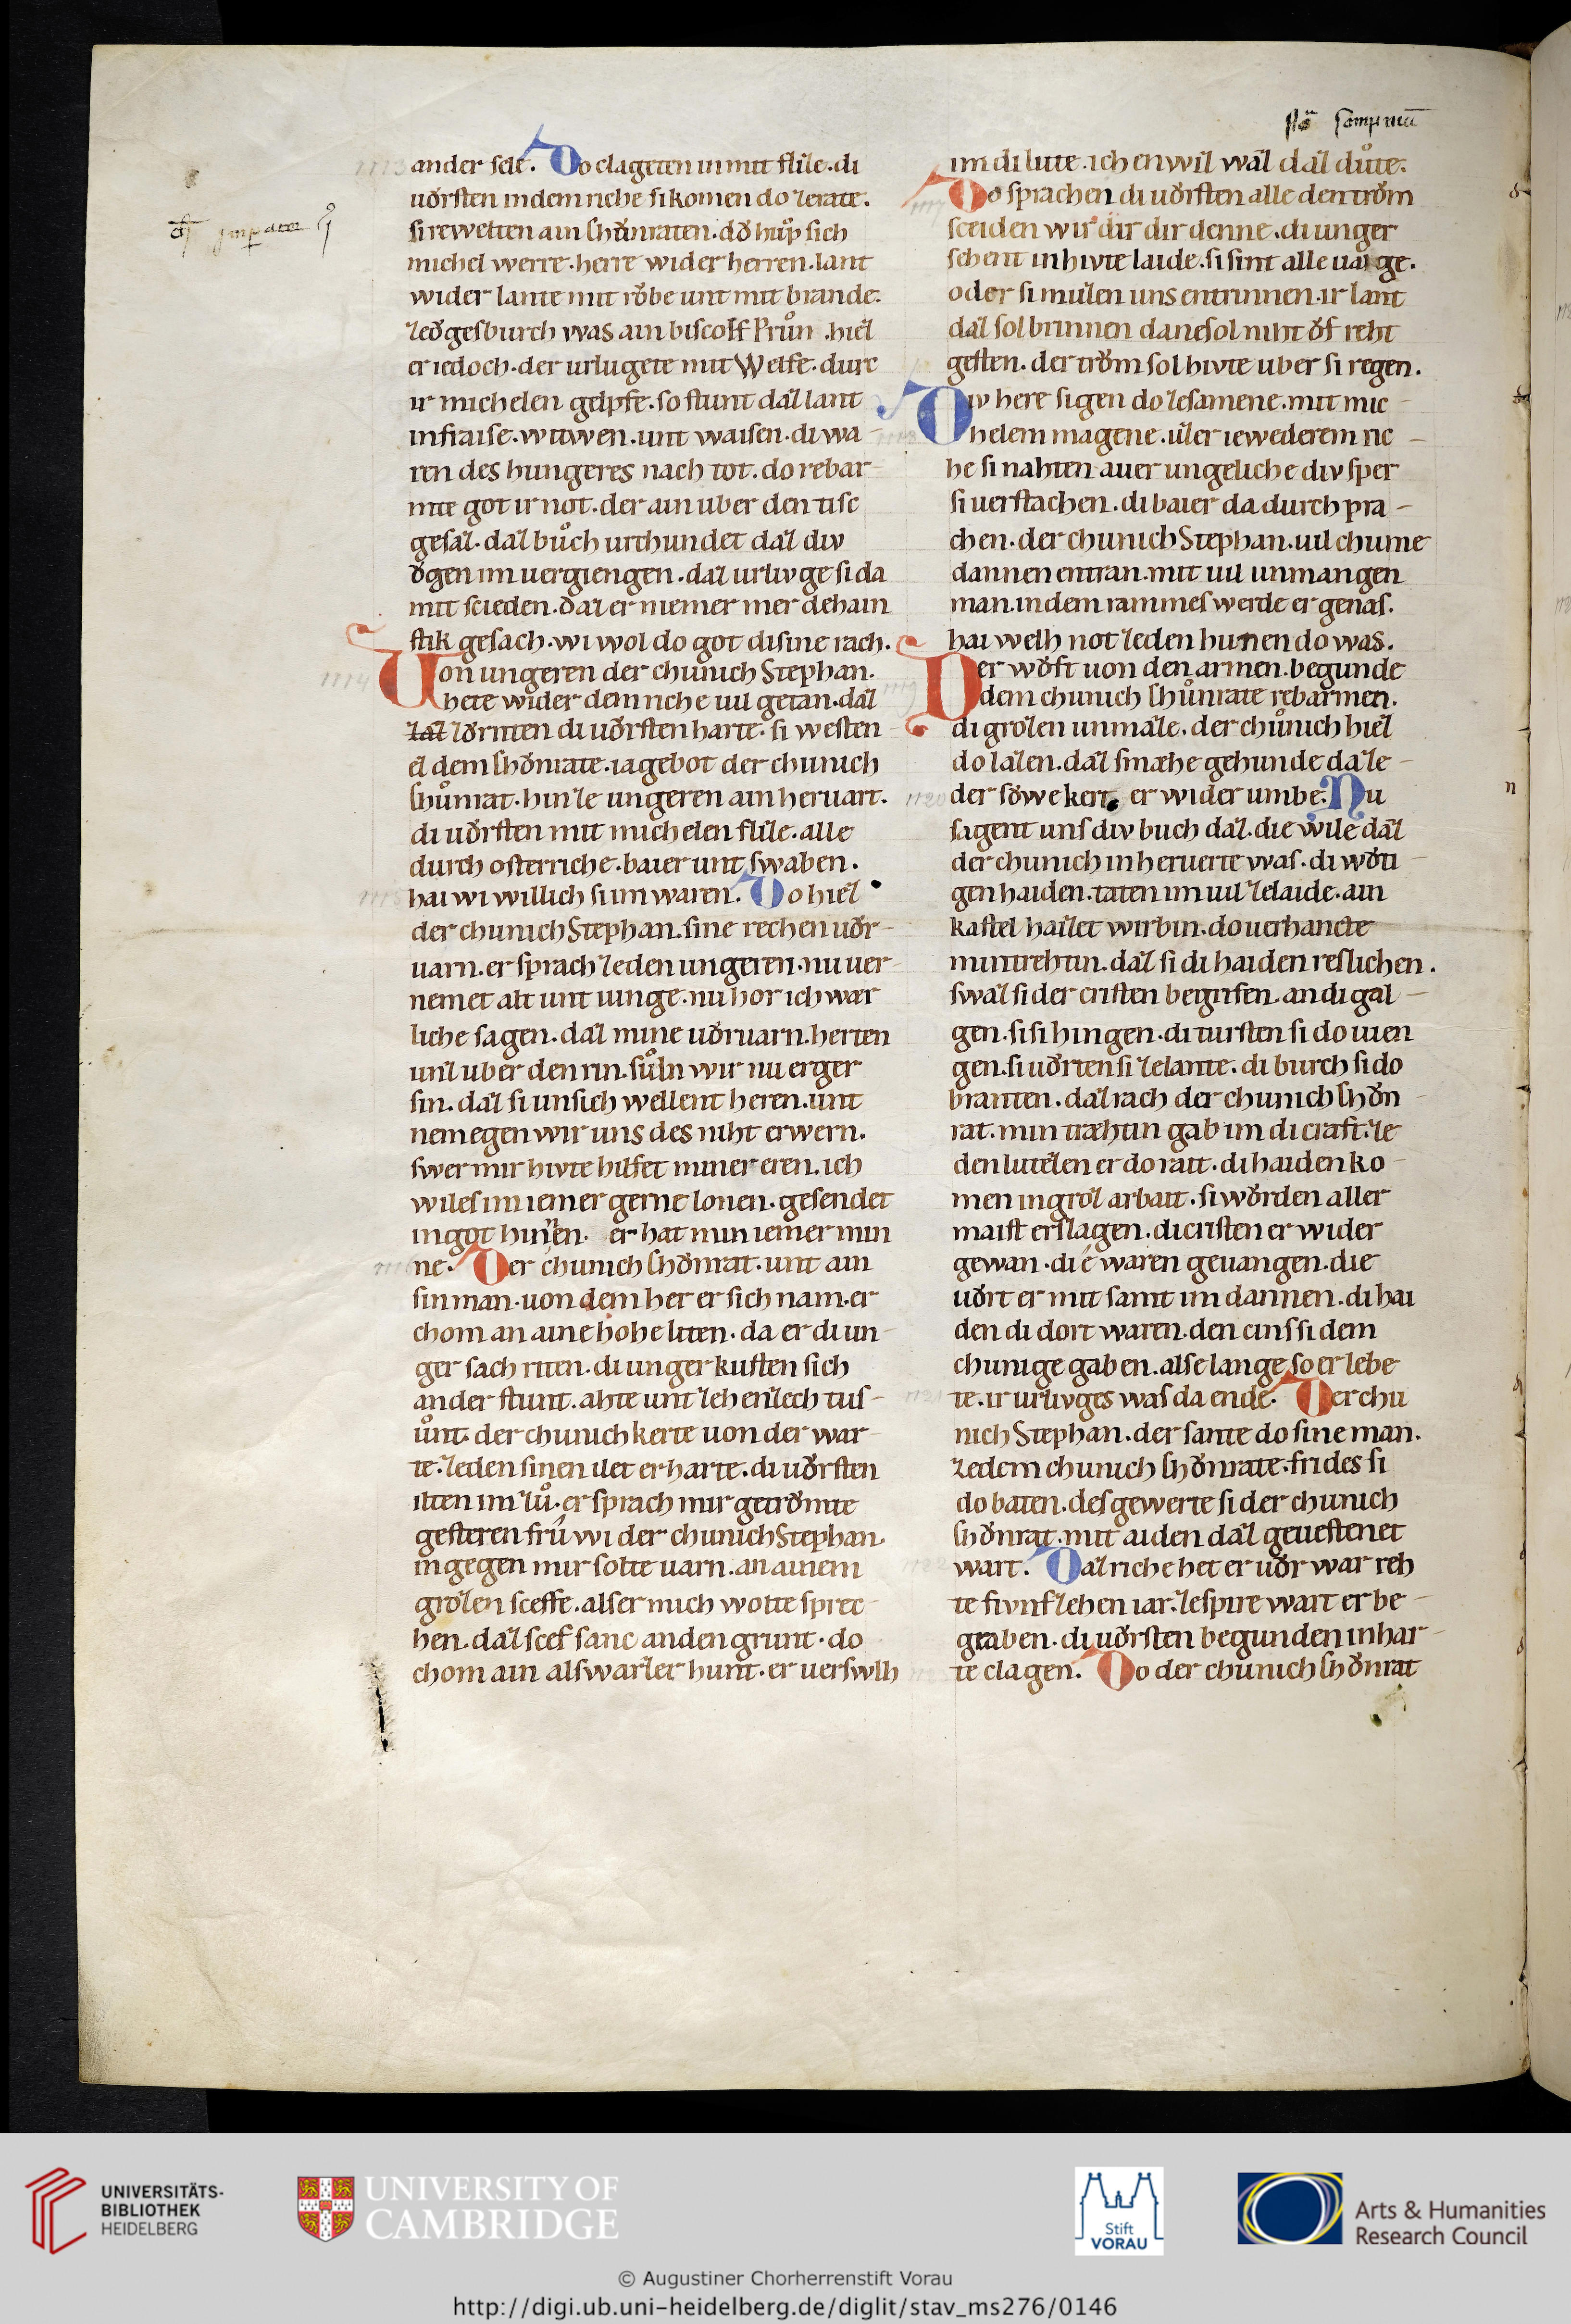 ander sele. Do clageten in mit flize. di
uŏrsten in dem riche si komen do zerate.
si rewelten ain Chŏnraten. dŏ hůp sich
michel werre. herre wider herren. lant
wider lante mit rŏbe unt mit brande.
zeŏgesburch was ain biscolf Průn. hiez
er iedoch. der urlugete mit Welfe. durc
ir michelen gelpfe. so stunt daz lant
in fraise. witwen. unt waisen. di wa
ren des hungeres nach tot. do rebar
mte got ir not. der ain uber den tisc
gesaz. daz bůch urchundet daz div
ŏgen im uergiengen. daz urlivge si da
mit scieden. daz er niemer mer dehain
stik gesach. wi wol do got di sine rach.
Uon ungeren der chunich Stephan.
hete wider dem riche uil getan. daz
zaz zŏrnten di uŏrsten harte. si westen
ez dem Chŏnrate. ia gebot der chunich
Chůnrat. hin ze ungeren ain heruart.
di uŏrsten mit michelen flize. alle
durch osterriche. baier unt swaben.
hai wi willich si im waren. Do hiez
der chunich Stephan. sine rechen uŏr
uarn. er sprach ze den ungeren. nu uer
nemet alt unt iunge. nu hor ich wær
liche sagen. daz mine uŏruarn. herten
unz uber den rin. suln wir nu erger
sin. daz si unsich wellent heren. unt
nemegen wir uns des niht erwern.
swer mir hivte hilfet miner eren. ich
wiles im iemer gerne lonen. gesendet
in got hinnen. er hat min iemer min
ne. Der chunich Chŏnrat. unt ain
sin man. uon dem her er sich nam. er
chom an aine hohe liten. da er di un
ger sach riten. di unger kusten sich
ander stunt. ahte unt zehenzech tus
ůnt. der chunich kerte uon der war
te. ze den sinen ilet er harte. di uŏrsten
ilten im zů. er sprach mir getrŏmte
gesteren frů wi der chunich Stephan.
ingegen mir solte uarn. an ainem
grozen sceffe. als er mich wolte sprec
hen. daz scef sanc an den grunt. do
chom ain alswarzer hunt. er uerswlh
Sto sompniu
im di lute. ich en wil waz daz důte.
Do sprachen di uŏrsten alle den trŏm
sceiden wir dir dir denne. di unger
sehent in hivte laide. si sint alle uaige.
oder si muzen uns entrinnen. ir lant
daz sol brinnen dane sol niht ŏf reht
gesten. der trŏm sol hivte uber si regen.
Div here sigen do zesamene. mit mic
helem magene. uzer iewederem ric
he si nahten auer ungeliche div sper
si uerstachen. di baier da durch pra
chen. der chunich Stephan. uil chume
dannen entran. mit uil unmangen
man. in dem rammes werde er genas.
hai welh not ze den hunen do was.
Der wŏft uon den armen. begunde
dem chunich Chůnrate rebarmen.
di grozen unmaze. der chůnich hiez
do lazen. daz smæhe gehunde da ze
der sŏwe kert er wider umbe. Nu
sagent uns div buch daz. die wile daz
der chunich in heruerte was. di wŏti
gen haiden. taten im uil ze laide. ain
kastel haizet wirbin. do uerhancte
min trehtin. daz si di haiden reslichen.
swaz si der cristen begrifen. an di gal
gen. si si hingen. di tursten si do uien
gen. si uŏrten si ze lante. di burch si do
branten. daz rach der chunich Chŏn
rat. min træhtin gab im di craft. ze
den lutezen er do rait. di haiden ko
men in groz arbait. si wŏrden aller
maist erslagen. di cristen er wider
gewan. die waren geuangen. die
uŏrt er mit samt im dannen. di hai
den di dort waren. den cins si dem
chunige gaben. alse lange so er lebe
te. ir urlivges was da ende. Der chu
nich Stephan. der sante do sine man.
ze dem chunich Chŏnrate. frides si
do baten. des gewerte si der chunich
Chŏnrat. mit aiden daz geuestenet
wart. Daz riche het er uŏr war reh
te fivnfzehen iar. ze spire wart er be
graben. di uŏrsten begunden in har
te clagen. Do der chunich Chŏnrat
UNIVERSITÄTS-
BIBLIOTHEK
HEIDELBERG
UNIVERSITY OF
CAMBRIDGE
Stift
VORAU
Arts & Humanities
Research Council
© Augustiner Chorherrenstift Vorau
http://digi.ub.uni-heidelberg.de/diglit/stav_ms276/0146